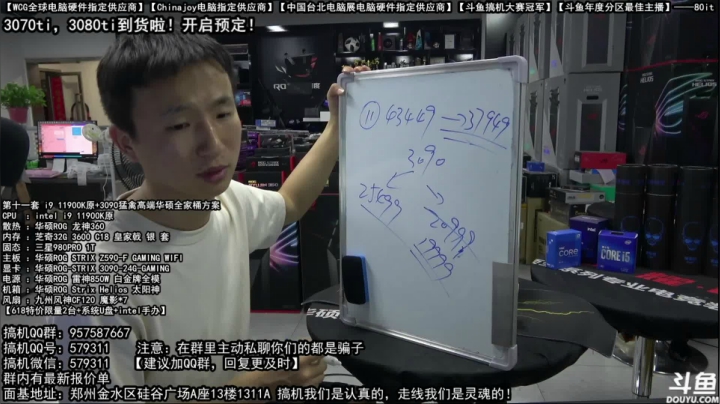 【WCG全球电脑硬件指定供应商】【Chinajoy电脑指定供应商】【中国台北电脑展电脑硬件指定供应商】【斗鱼搞机大赛冠军】【斗鱼年度分区最佳主播】——80it
3070ti, 3080ti到货啦! 开启预定!
⑪ 43449 → 37949
3090
25699
20999
19999
HELIOS
CORE i5
第十一套 i9 11900K原+3090猛禽高端华硕全家桶方案
CPU : intel i9 11900K原
散热 : 华硕ROG 龙神360
内存 : 芝奇32G 3600 C18 皇家戟 银 套
固态 : 三星980PRO 1T
主板 : 华硕ROG STRIX Z590-F GAMING WIFI
显卡 : 华硕ROG-STRIX 3090-24G-GAMING
电源 : 华硕ROG 雷神850W 白金牌全模
机箱 : 华硕ROG Strix Helios 太阳神
风扇 : 九州风神CF120 魔影*7
【618特价限量2台+系统U盘+intel手办】
搞机QQ群: 957587667
搞机QQ号: 579311 注意: 在群里主动私聊你们的都是骗子
搞机微信: 579311 【建议加QQ群, 回复更及时】
群内有最新报价单
面基地址: 郑州金水区硅谷广场A座13楼1311A 搞机我们是认真的, 走线我们是灵魂的!
斗鱼
DOUYU.COM